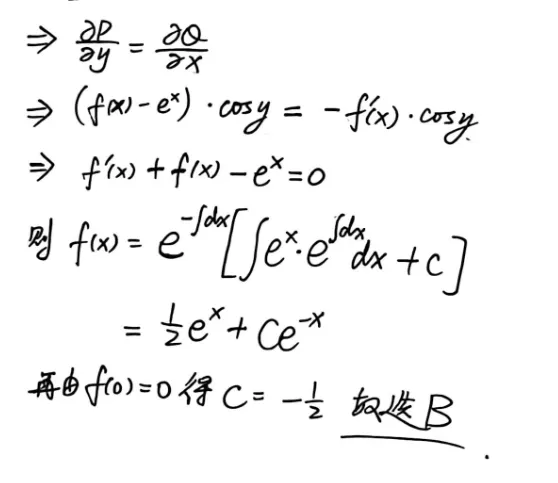 ⇒ ∂P/∂y = ∂Q/∂x
⇒ (f(x) - eˣ)·cosy = -f′(x)·cosy
⇒ f′(x) + f(x) - eˣ = 0
则 f(x) = e^{-∫dx}[∫eˣ·e^{∫dx}dx + C]
= ½eˣ + Ce⁻ˣ
再由 f(0)=0 得 C = -½ 故选 B.